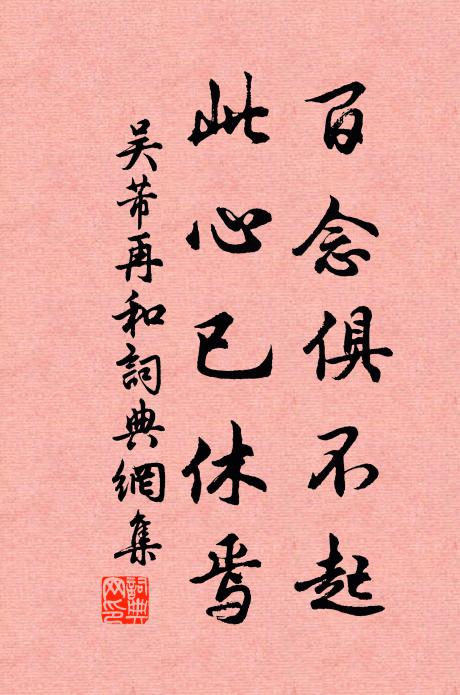 百念俱不起
此心已休焉
吴芾再和詞典網集
詞典网印